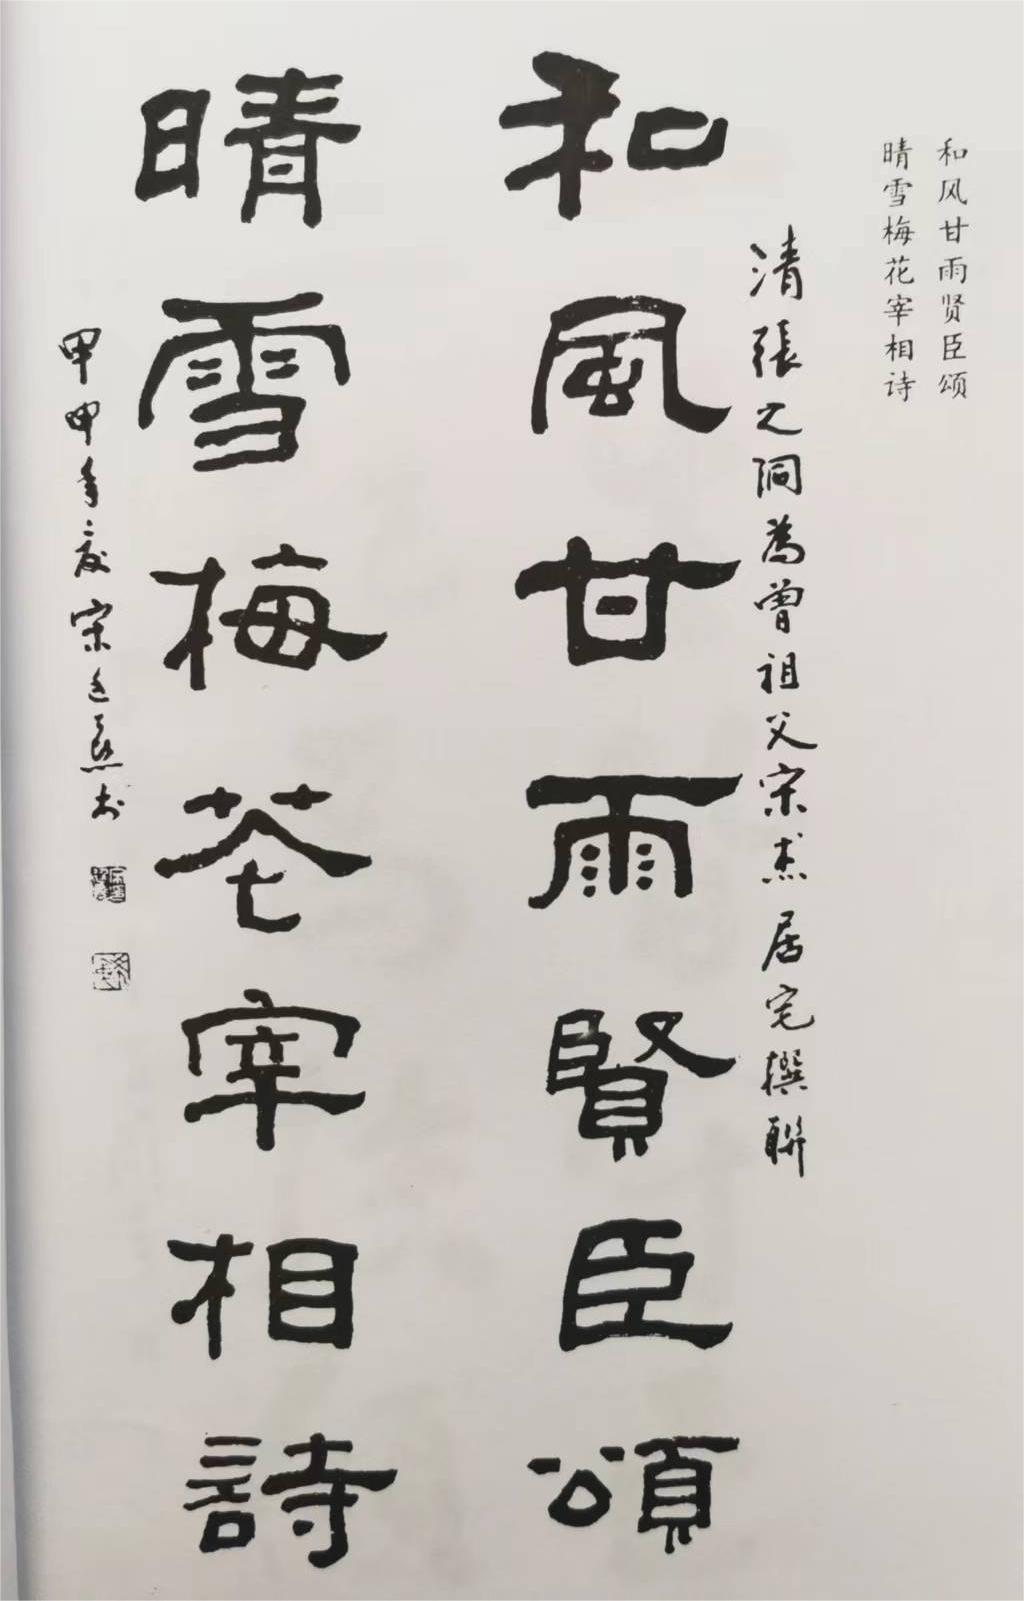 和风甘雨贤臣颂
晴雪梅花宰相诗
清張之洞為曾祖父宋杰居宅撰聯
和風甘雨賢臣頌
晴雪梅花宰相詩
甲申年夏宋